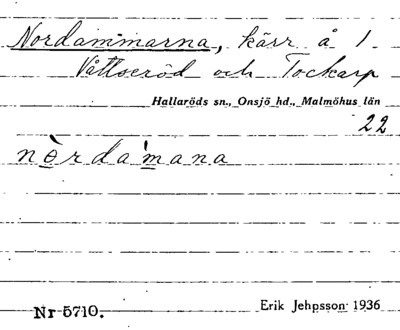 Nordammarna, kärr å 1
Våttseröd och Tockarp
Hallaröds sn., Onsjö hd., Malmöhus län
22
nè̱rda'm̱ana
Nr 5710.
Erik Jehpsson 1936